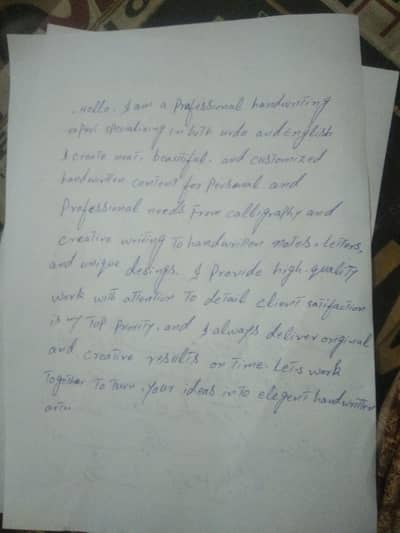 . Hello. I am a Professional handwriting
expert specializing in both urdo and English
I create neat, beautiful. and customized
handwritten content for Personal and
Professional needs From calligraphy and
creative writing To handwritten notes, Letters,
and unique desings. I Provide high-quality
work with attention To detail client satifaction
is my Top Priority. and I always deliver original
and creative results on Time. Let's work
Together To turn. Your ideas into elegent handwritten